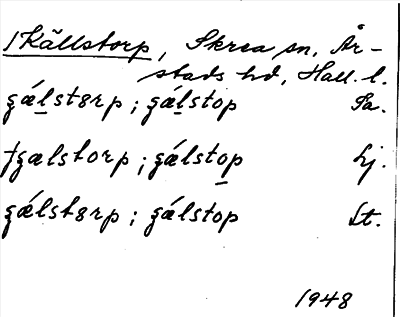 /Källstorp, Skrea sn, År-
stads hd, Hall. l.
gǽlstørp ; gǽlstop Sa.
fgælstorp ; gǽlstop Lj.
gǽlstørp ; gǽlstop Lt.
1948